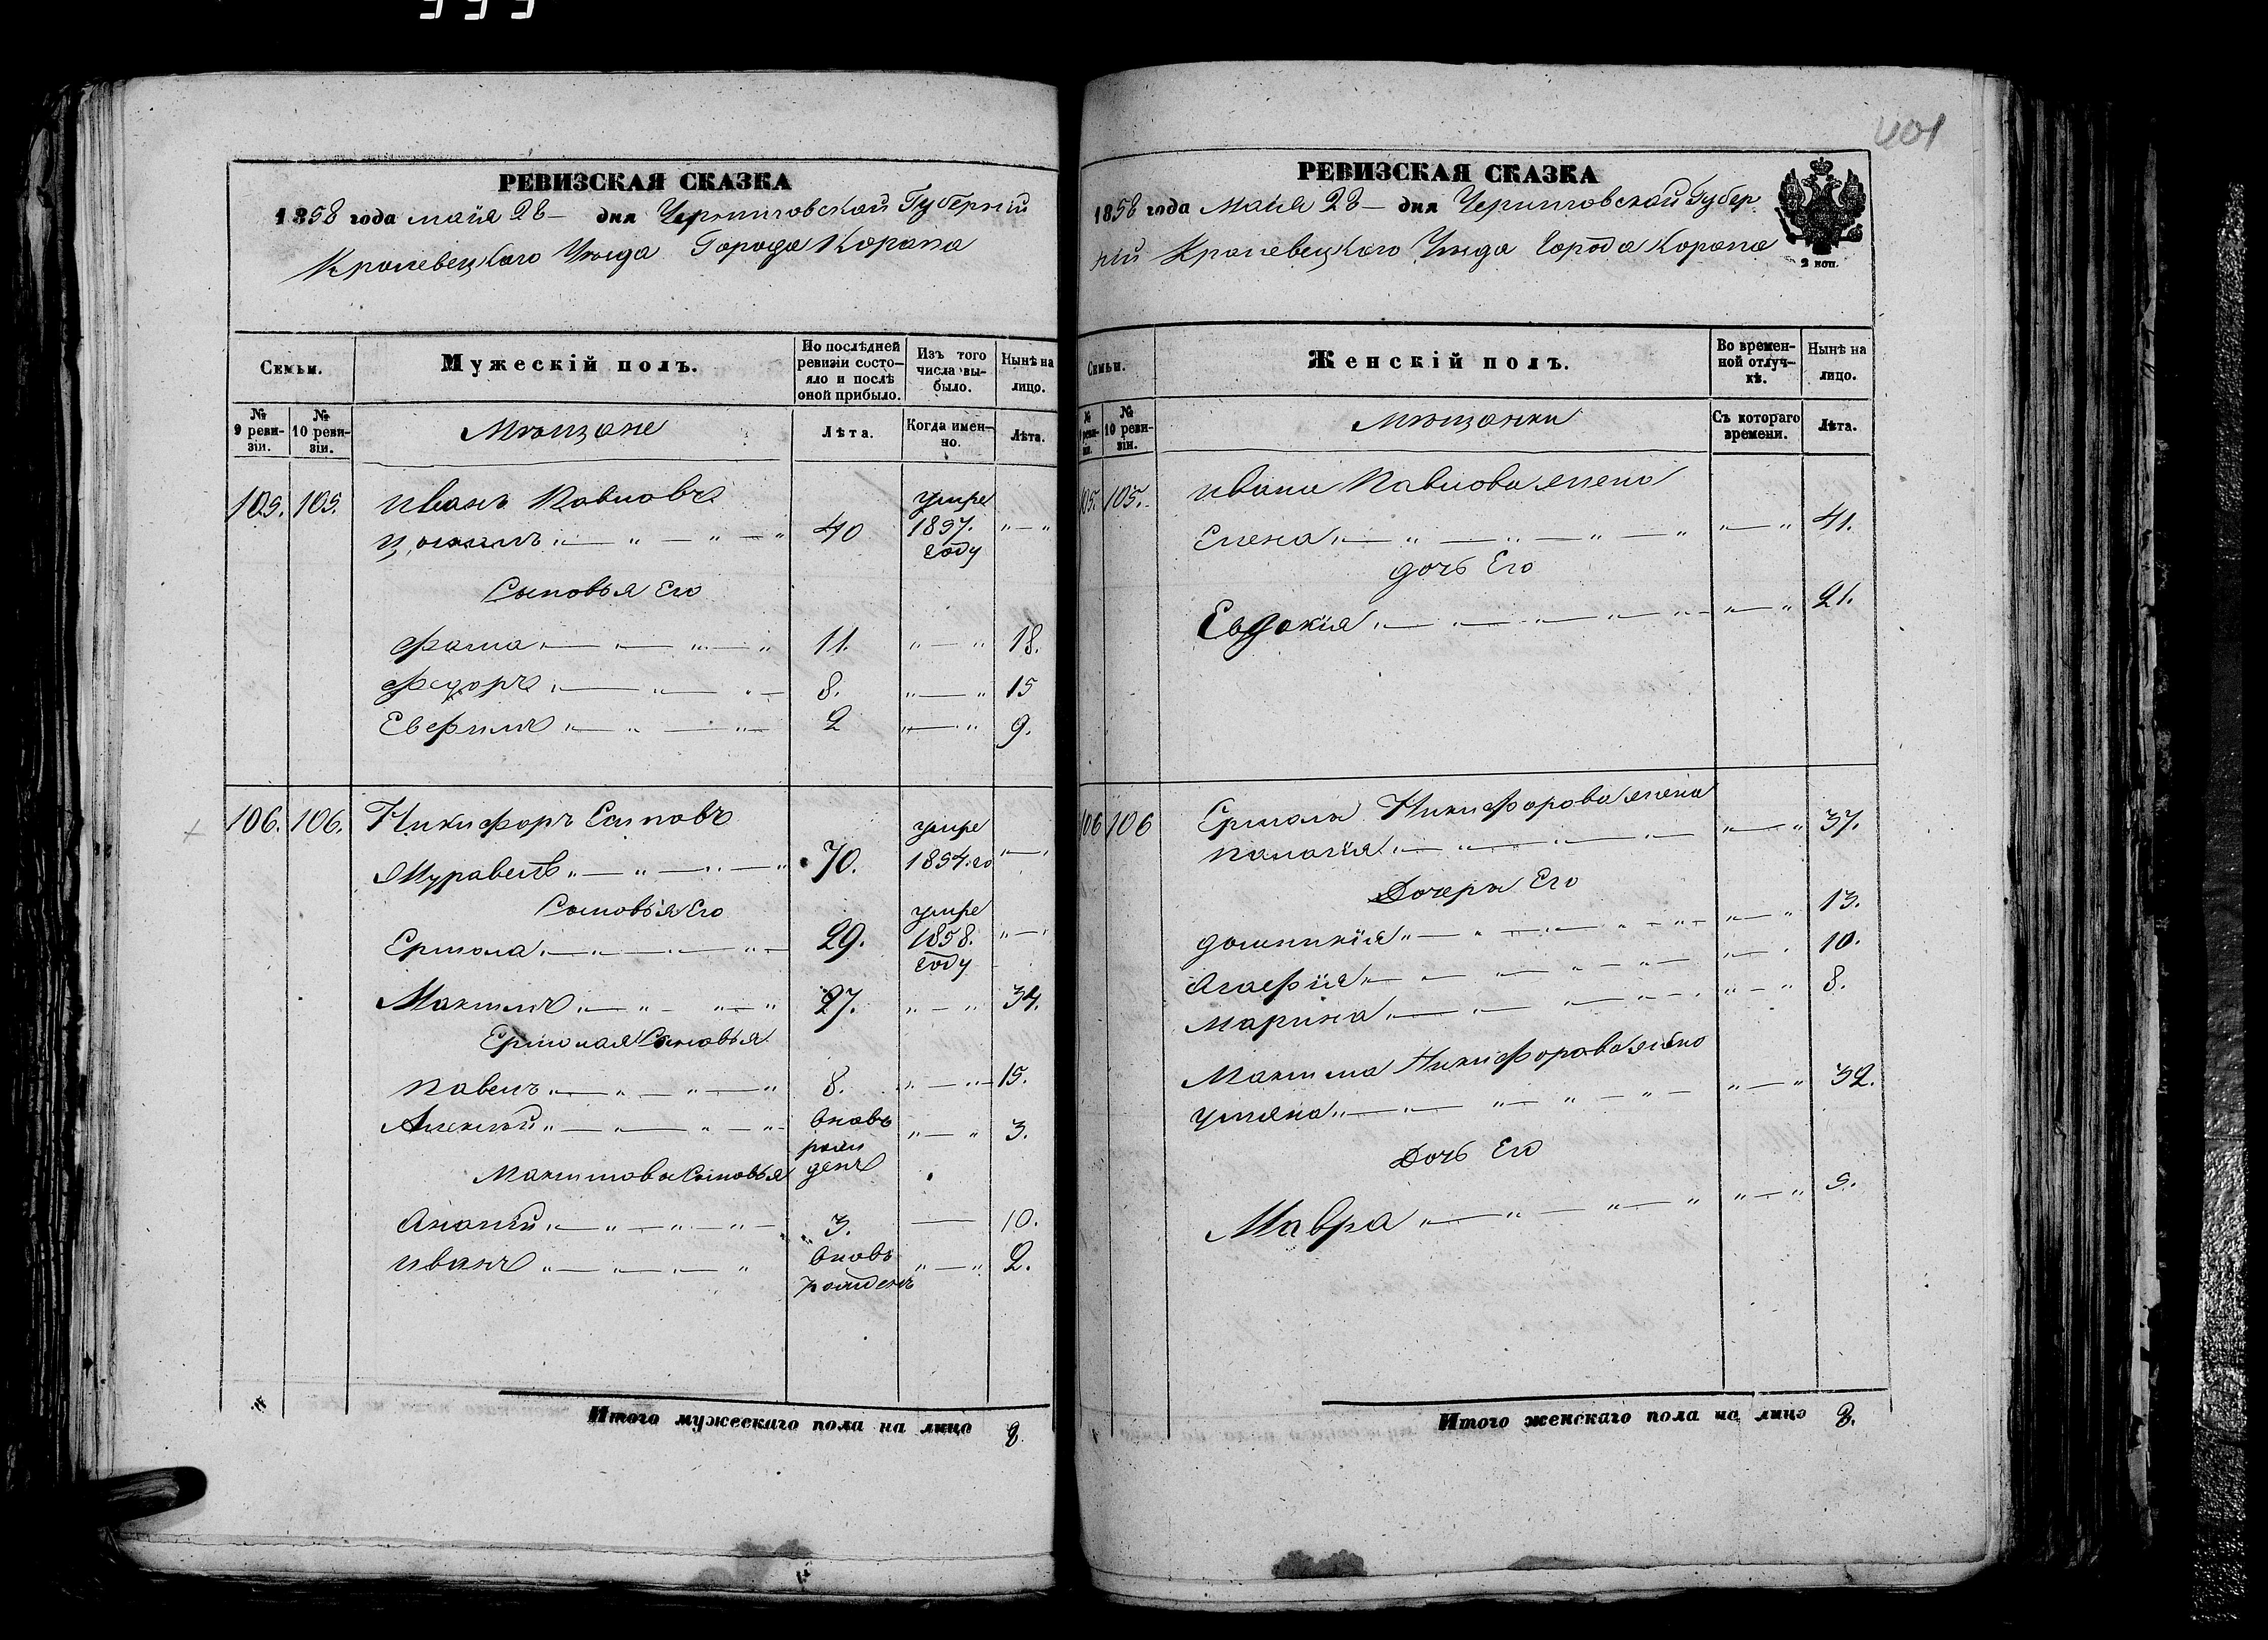 401
РЕВИЗСКАЯ СКАЗКА
1858 года майя 28 дня Черниговской Губерніи
Кролевецкого Уѣзда Города Коропа
Семьи.
Мужескій полъ.
По послѣдней ревизіи состояло и послѣ оной прибыло.
Изъ того числа выбыло.
Нынѣ на лицо.
№ 9 ревизіи.
№ 10 ревизіи.
Мѣщане
Лѣта.
Когда именно.
Лѣта.
105. 105. Иванъ Павловъ умре
40 1857. году
Сыновья Его
Фома 11. 18.
Федоръ 8. 15
Евфимъ 2 9.
106. 106. Никифоръ Есиповъ умре
Журавель 70. 1854. го
Сыновья Его умре
Ермола 29. 1858. году
Максимъ 27. 34.
Ермолая Сыновья
Павелъ 8. 15.
Алексѣй вновь рожденъ 3.
Максимовы Сыновья
Ананій 3. 10.
Иванъ вновь рожденъ 2.
Итого мужескаго пола на лицо 8
РЕВИЗСКАЯ СКАЗКА
1858 года Майя 28 дня Черниговской Губер
ніи Кролевецкого Уѣзда Города Коропа
2 коп.
Семьи.
Женскій полъ.
Во временной отлучкѣ.
Нынѣ на лицо.
№ 9 ревизіи.
№ 10 ревизіи.
Мѣщанки
Съ котораго времени.
Лѣта.
105. 105. Ивана Павлова жена
Елена 41.
дочь Его
Евдокія 21.
106 106 Ермолы Никифорова жена
Палагія 37.
Дочеры Его
Домникія 13.
Агафія 10.
Марина 8.
Максима Никифорова жена
Уляна 32.
Дочь Его
Мавра
Итого женскаго пола на лицо 8.